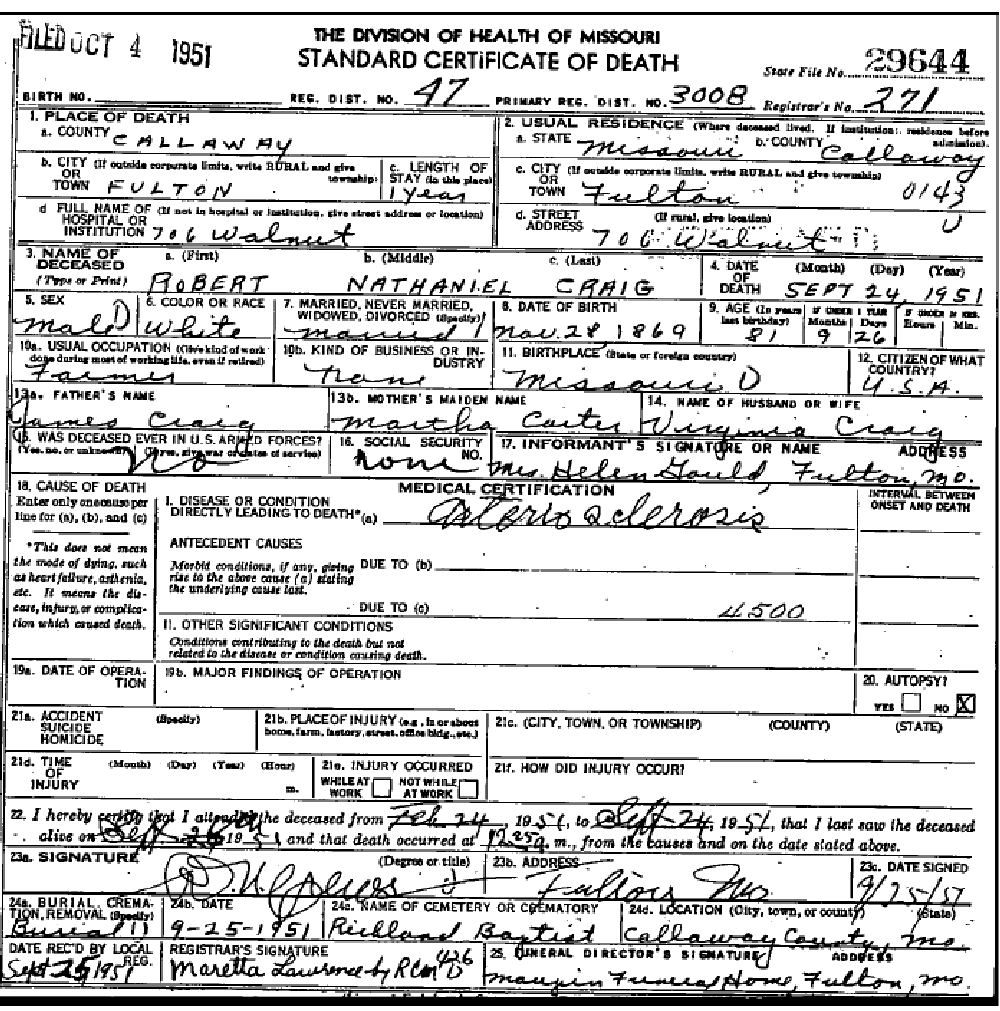 FILED OCT 4 1951
THE DIVISION OF HEALTH OF MISSOURI
STANDARD CERTIFICATE OF DEATH
State File No. 29644
BIRTH NO. REG. DIST. NO. 47 PRIMARY REG. DIST. NO. 3008 Registrar's No. 271
1. PLACE OF DEATH
a. COUNTY CALLAWAY
2. USUAL RESIDENCE (Where deceased lived. If institution: residence before admission).
a. STATE Missouri b. COUNTY Callaway
b. CITY (If outside corporate limits, write RURAL and give township)
OR
TOWN FULTON
c. LENGTH OF STAY (in this place)
1 year
c. CITY (If outside corporate limits, write RURAL and give township)
OR
TOWN Fulton 0143
d. FULL NAME OF (If not in hospital or institution, give street address or location)
HOSPITAL OR
INSTITUTION 706 Walnut
d. STREET ADDRESS (If rural, give location)
706 Walnut
3. NAME OF DECEASED (Type or Print)
a. (First) b. (Middle) c. (Last)
ROBERT NATHANIEL CRAIG
4. DATE OF DEATH (Month) (Day) (Year)
SEPT 24, 1951
5. SEX
Male
6. COLOR OR RACE
White
7. MARRIED, NEVER MARRIED, WIDOWED, DIVORCED (Specify)
married 1
8. DATE OF BIRTH
Nov. 28, 1869
9. AGE (In years last birthday) IF UNDER 1 YEAR Months Days IF UNDER 24 HRS. Hours Min.
81 9 26
10a. USUAL OCCUPATION (Give kind of work done during most of working life, even if retired)
Farmer
10b. KIND OF BUSINESS OR INDUSTRY
none
11. BIRTHPLACE (State or foreign country)
Missouri
12. CITIZEN OF WHAT COUNTRY?
U.S.A.
13a. FATHER'S NAME
James Craig
13b. MOTHER'S MAIDEN NAME
Martha Carter
14. NAME OF HUSBAND OR WIFE
Virginia Craig
15. WAS DECEASED EVER IN U.S. ARMED FORCES?
(Yes, no, or unknown) (If yes, give war or dates of service)
No
16. SOCIAL SECURITY NO.
none
17. INFORMANT'S SIGNATURE OR NAME ADDRESS
Mrs. Helen Gould, Fulton, Mo.
18. CAUSE OF DEATH
Enter only one cause per line for (a), (b), and (c)
*This does not mean the mode of dying, such as heart failure, asthenia, etc. It means the disease, injury, or complication which caused death.
MEDICAL CERTIFICATION
INTERVAL BETWEEN ONSET AND DEATH
I. DISEASE OR CONDITION
DIRECTLY LEADING TO DEATH* (a) Arteriosclerosis
ANTECEDENT CAUSES
Morbid conditions, if any, giving rise to the above cause (a) stating the underlying cause last.
DUE TO (b)
DUE TO (c) 4500
II. OTHER SIGNIFICANT CONDITIONS
Conditions contributing to the death but not related to the disease or condition causing death.
19a. DATE OF OPERATION
19b. MAJOR FINDINGS OF OPERATION
20. AUTOPSY?
YES NO X
21a. ACCIDENT SUICIDE HOMICIDE (Specify)
21b. PLACE OF INJURY (e.g., in or about home, farm, factory, street, office bldg., etc.)
21c. (CITY, TOWN, OR TOWNSHIP) (COUNTY) (STATE)
21d. TIME OF INJURY (Month) (Day) (Year) (Hour) m.
21e. INJURY OCCURRED
WHILE AT WORK NOT WHILE AT WORK
21f. HOW DID INJURY OCCUR?
22. I hereby certify that I attended the deceased from Feb 24, 1951, to Sept 24, 1951, that I last saw the deceased
alive on Sept 1951, and that death occurred at 12:25a m., from the causes and on the date stated above.
23a. SIGNATURE (Degree or title)
23b. ADDRESS
Fulton Mo
23c. DATE SIGNED
9/25/51
24a. BURIAL, CREMATION, REMOVAL (Specify)
Burial
24b. DATE
9-25-1951
24c. NAME OF CEMETERY OR CREMATORY
Richland Baptist
24d. LOCATION (City, town, or county) (State)
Callaway County, Mo.
DATE REC'D BY LOCAL REG.
Sept 25, 1951
REGISTRAR'S SIGNATURE 426
Maretta Lawrence by
25. FUNERAL DIRECTOR'S SIGNATURE ADDRESS
Maupin Funeral Home, Fulton, Mo.